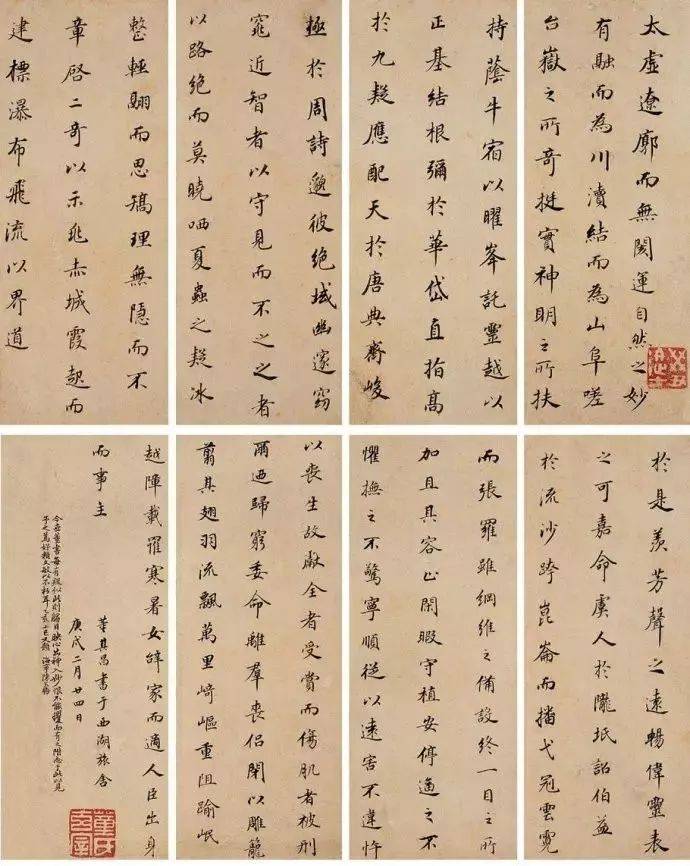 太虛遼廓而無閡運自然之妙
有融而為川瀆結而為山阜嗟
台嶽之所奇挺實神明之所扶
持蔭牛宿以曜峯託靈越以
正基結根彌於華岱直指高
於九疑應配天於唐典齊峻
極於周詩邈彼絕域幽邃窈
窕近智者以守見而不之之者
以路絕而莫曉哂夏蟲之疑冰
整輕翮而思矯理無隱而不
章啓二奇以示兆赤城霞起而
建標瀑布飛流以界道
於是羨芳聲之遠暢偉靈表
之可嘉命虞人於隴坻詔伯益
於流沙跨崑崙而播弋冠雲霓
而張羅雖綱維之備設終一目之所
加且其容止閑暇守植安停逼之不
懼撫之不驚寧順從以遠害不違忤
以喪生故獻全者受賞而傷肌者被刑
爾迺歸窮委命離羣喪侶閉以雕籠
翦其翅羽流飄萬里崎嶇重阻踰岷
越障載罹寒暑女辭家而適人臣出身
而事主
董其昌書于西湖旅舍
庚戌二月廿四日